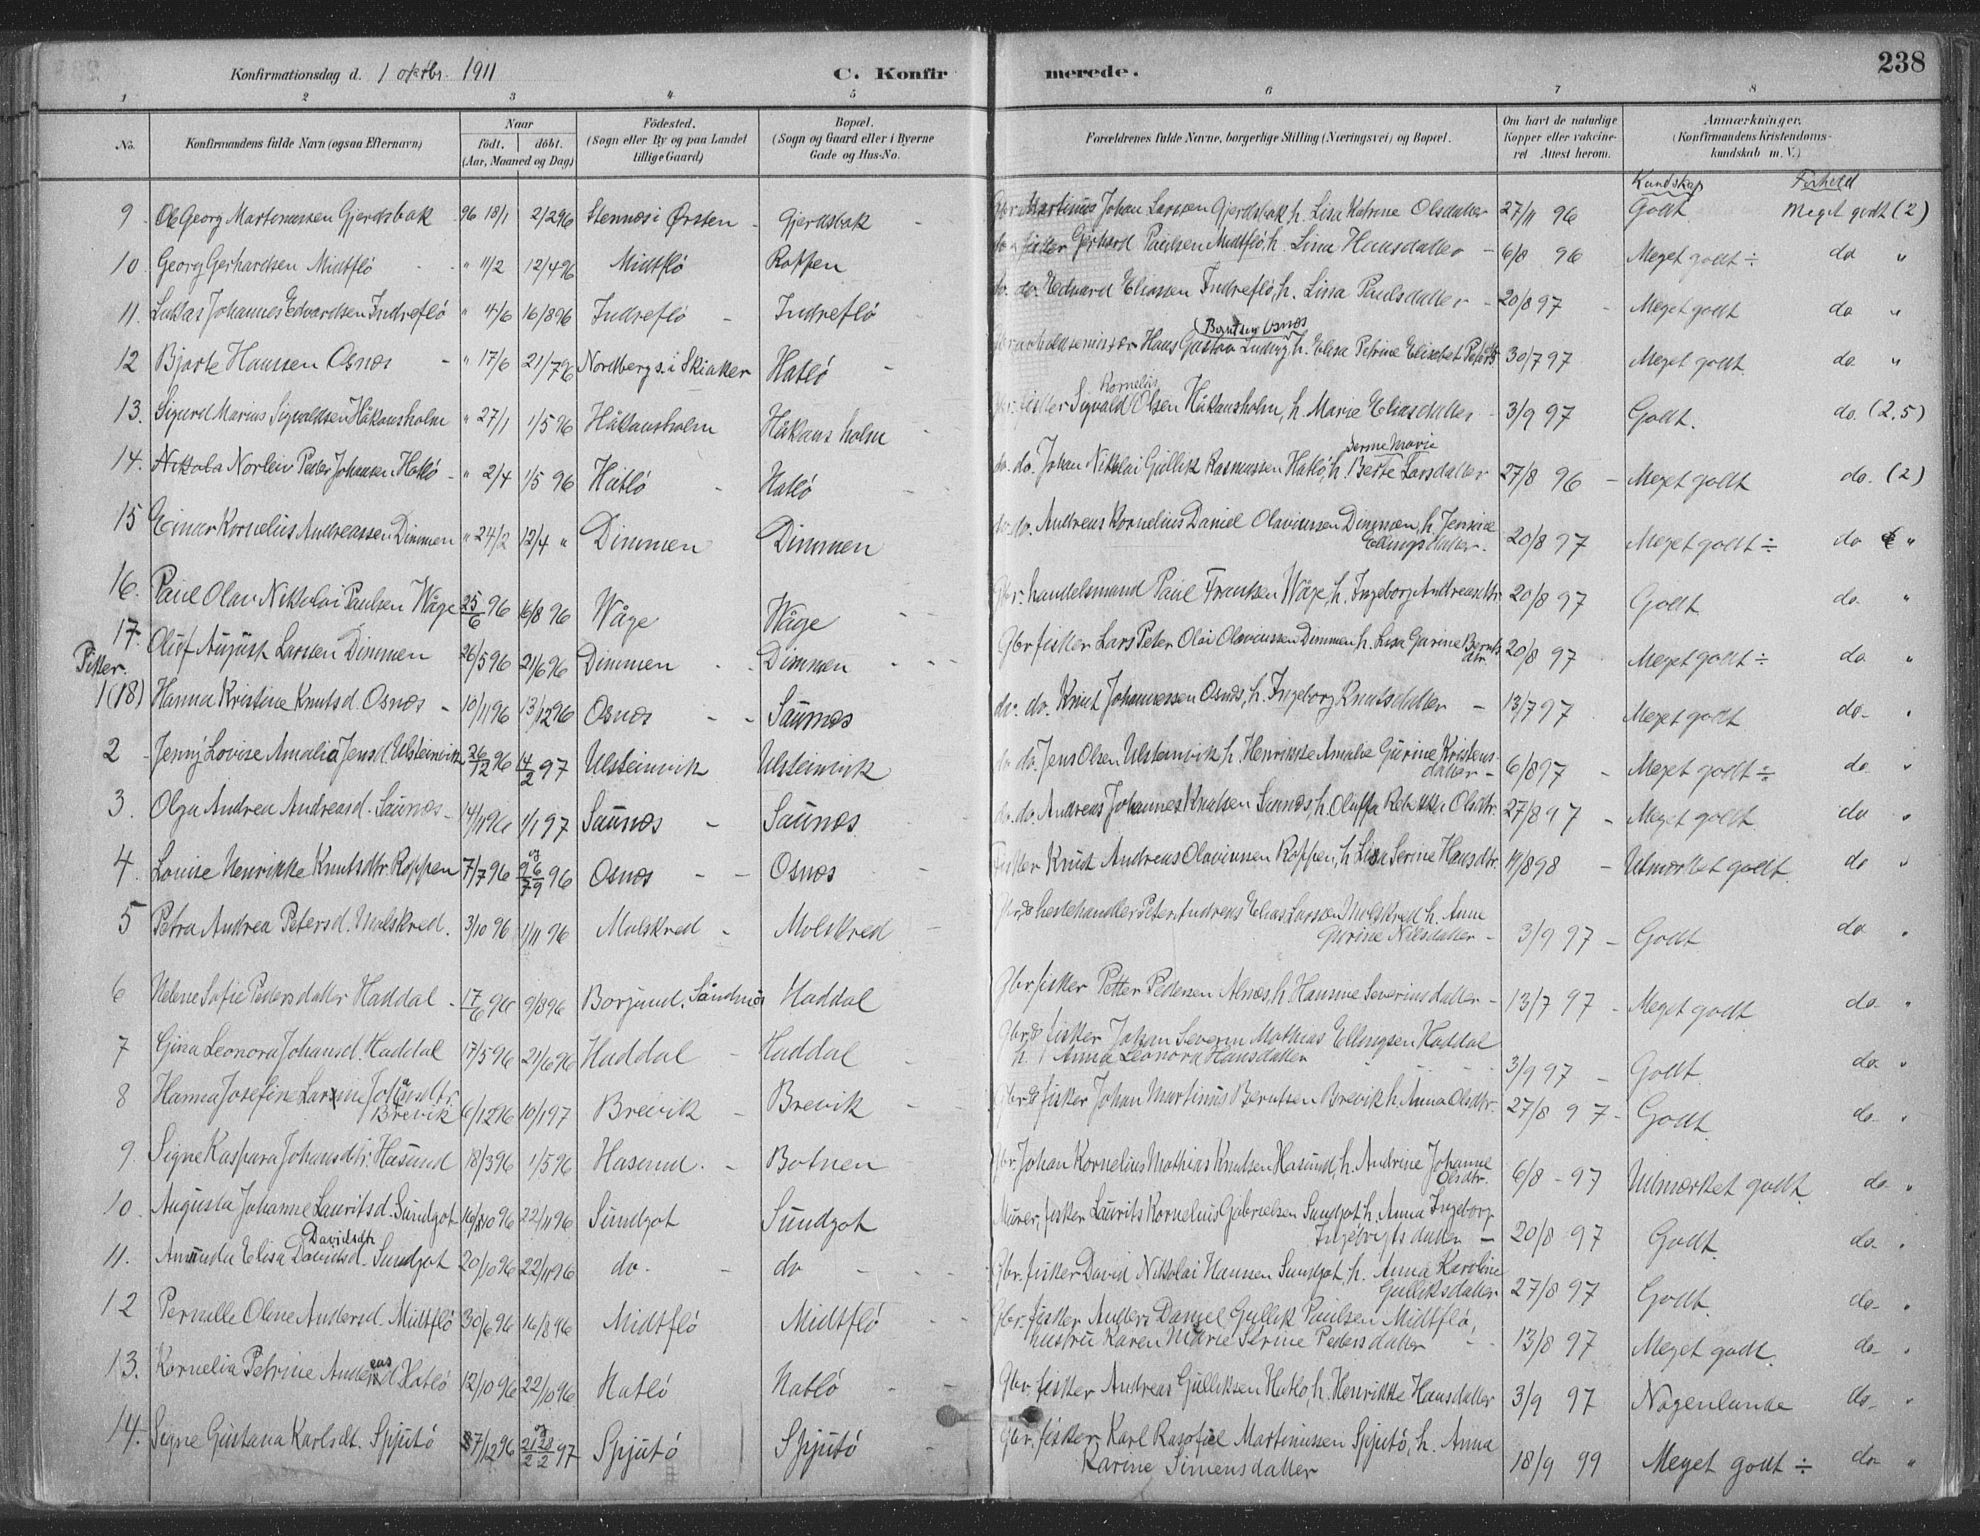 Konfirmationsdag d. 1 oktbr. 1911 C. Konfirmerede. 238
1 2 3 4 5 6 7 8
No. Konfirmandens fulde Navn (ogsaa Efternavn) Naar født, døbt. (Aar, Maaned og Dag) Fødested. (Sogn eller By og paa Landet tillige Gaard) Bopæl. (Sogn og Gaard eller i Byerne Gade og Hus-No. Forældrenes fulde Navne, borgerlige Stilling (Næringsvei) og Bopæl. Om havt de naturlige Kopper eller vakcineret Attest herom. Anmærkninger. (Konfirmandens Kristendomskundskab m. V.)
Kundskap Forhold
9 Georg Martinussen Gjerdsbak 96 18/1 2/2 96 Stennes i Ørsten Gjerdsbak Gbr. Martinus Johan Larssen Gjerdsbak h. Lisa Katrine Olsdatter 27/11 96 Godt Meget godt (2)
10 Georg Gerhardsen Midtflö " 11/2 12/4 96 Midtflö Roppen do. fisker Gerhard Paulsen Midtflö, h. Lina Hansdatter 6/8 96 Meget godt ÷ do "
11. Lukas Johannes Edvardsen Indreflö " 4/6 16/8 96 Indreflö Indreflö do. do. Edvard Eliassen Indreflö, h. Lina Paulsdatter 20/8 97 Meget godt do "
12 Bjarte Hanssen Osnæs " 17/6 21/7 96 Nordbergs. i Skiaker Hatlö Hans Gustav Ludvig (Berntsen Osnæs) h. Elisa Petrine Elisabet 30/7 97 Meget godt. do. "
13. Sigurd Marius Sigvaldsen Håkansholm " 27/1 1/5 96 Håkansholm Håkansholm Gbr. fisker Sigvald Kornelius Olsen Håkansholm, h. Marie Eliasdatter 3/9 97 Godt. do. (2,5)
14. Nikola Norleiv Petter Johansen Hatlö " 2/4 1/5 96 Hatlö Hatlö do. do. Johan Nikolai Gullik Rasmussen Hatlö, h. Serine Marie Larsdatter 27/8 96 Meget godt do. (2)
15 Einar Kornelius Andreassen Dimmen " 24/2 12/4 " Dimmen Dimmen do. do. Andreas Kornelius Daniel Olaviussen Dimmen, h. Jensine Ellingsdatter. 20/8 97 Meget godt ÷ do "
16. Paul Olav Nikolai Paulsen Wåge 25/6 96 16/8 96 Wåge Wåge Gbr. handelsmand Paul Frantsen Wåge, h. Ingeborg Andreasdtr 20/8 97 Godt do. "
17. Oluf August Larsen Dimmen 26/5 96 21/6 96 Dimmen Dimmen Gbr fisker Lars Peter Olai Olaviussen Dimmen h. Lisa Gurine Berntsdtr. 20/8 97 Meget godt ÷ do "
Piker.
1 (18) Hanna Kristine Knutsd. Osnæs 10/11 96 13/12 96 Osnæs Saunæs do. do. Knut Johannessen Osnæs, h. Ingeborg Knutsdatter 13/7 97 Meget godt do "
2 Jenny Lovise Amalia Jensd. Ulsteinvik 26/12 96 14/2 97 Ulsteinvik Ulsteinvik do. do. Jens Olsen Ulsteinvik h. Henrikke Amalie Gurine Kristensdatter 6/8 97 Meget godt ÷ do. "
3. Olga Andrea Andreasd. Saunæs 14/11 96 1/1 97 Saunæs Saunæs do. do. Andreas Johannes Knutsen Saunæs, h. Oluffa Rebekka Olsdtr. 27/8 97 Meget godt. do "
4. Louise Henrikke Knutsdtr. Roppen 7/7 96 9/7 og 6/9 96 Osnæs Osnæs Fisker Knut Andreas Olaviussen Roppen, h. Lisa Serine Hansdtr. 11/8 98 Utmærket godt. do "
5 Petra Andrea Petersd. Molskred. 3/10 96 1/11 96 Molskred Molskred Gbr. & hestehandler Peter Andreas Elias Larsen Molskred h. Anne Gurine Nilsdatter 3/9 97 Godt do "
6 Helene Sofie Pedersdatter Haddal 17/6 96 9/8 96 Borjund. Söndmör Haddal Gbr fisker Petter Pedersen Alnæs, h. Hansine Severinsdatter 13/7 97 Meget godt do. "
7 Gina Leonora Johansd. Haddal 17/5 96 21/6 96 Haddal Haddal Gbr. & fisker Johan Severin Mathias Ellingsen Haddal h. Anna Leonora Hansdatter 3/9 97 Godt. do "
8 Hanna Josefine Larsine Johansdtr. Brevik 6/12 96 10/1 97 Brevik Brevik Gbr. & fisker Johan Martinus Berntsen Brevik h. Anna Olsdtr. 27/8 97 Godt. do "
9. Signe Kaspara Johansdtr. Hasund 18/3 96 1/5 96 Hasund. Botnen Gbr. Johan Kornelius Mathias Knutsen Hasund, h. Andrine Johanne Olsdtr. 6/8 97 Utmærket godt do "
10. Augusta Johanne Lauritsd. Sundgot 16/10 96 22/11 96 Sundgot Sundgot Murer, fisker Laurits Kornelius Gabrielsen Sundgot h. Anna Ingeborg Ingebrigtsdatter 20/8 97 Godt. do. "
11. Amanda Elisa Davidsd. Davidsdtr Sundgot 20/10 96 22/11 96 do. do Gbr. fisker David Nikolai Hansen Sundgot, h. Anna Karoline Gulliksdatter 27/8 97 Godt. do "
12 Pernille Oline Andersd. Midtflö 30/6 96 16/8 96 Midtflö Midtflö Gbr. fisker Anders Daniel Gullik Paulsen Midtflö, hustru Karen Marie Serine Pedersdatter 13/8 97 Meget godt. do "
13. Kornelia Petrine Andreasd Hatlö 12/10 96 22/10 96 Hatlö Hatlö Gbr. fisker Andreas Gulliksen Hatlö, h. Henrikke Hansdatter 3/9 97 Nogenlunde do. "
14. Signe Gustava Karlsdt. Spjutö 27/12 96 21/2 og 28/2 97 Spjutö Spjutö Gbr. fisker Karl Martinussen Spjutö, h. Anna Karine Simensdatter 18/9 99 Meget godt ÷ do "